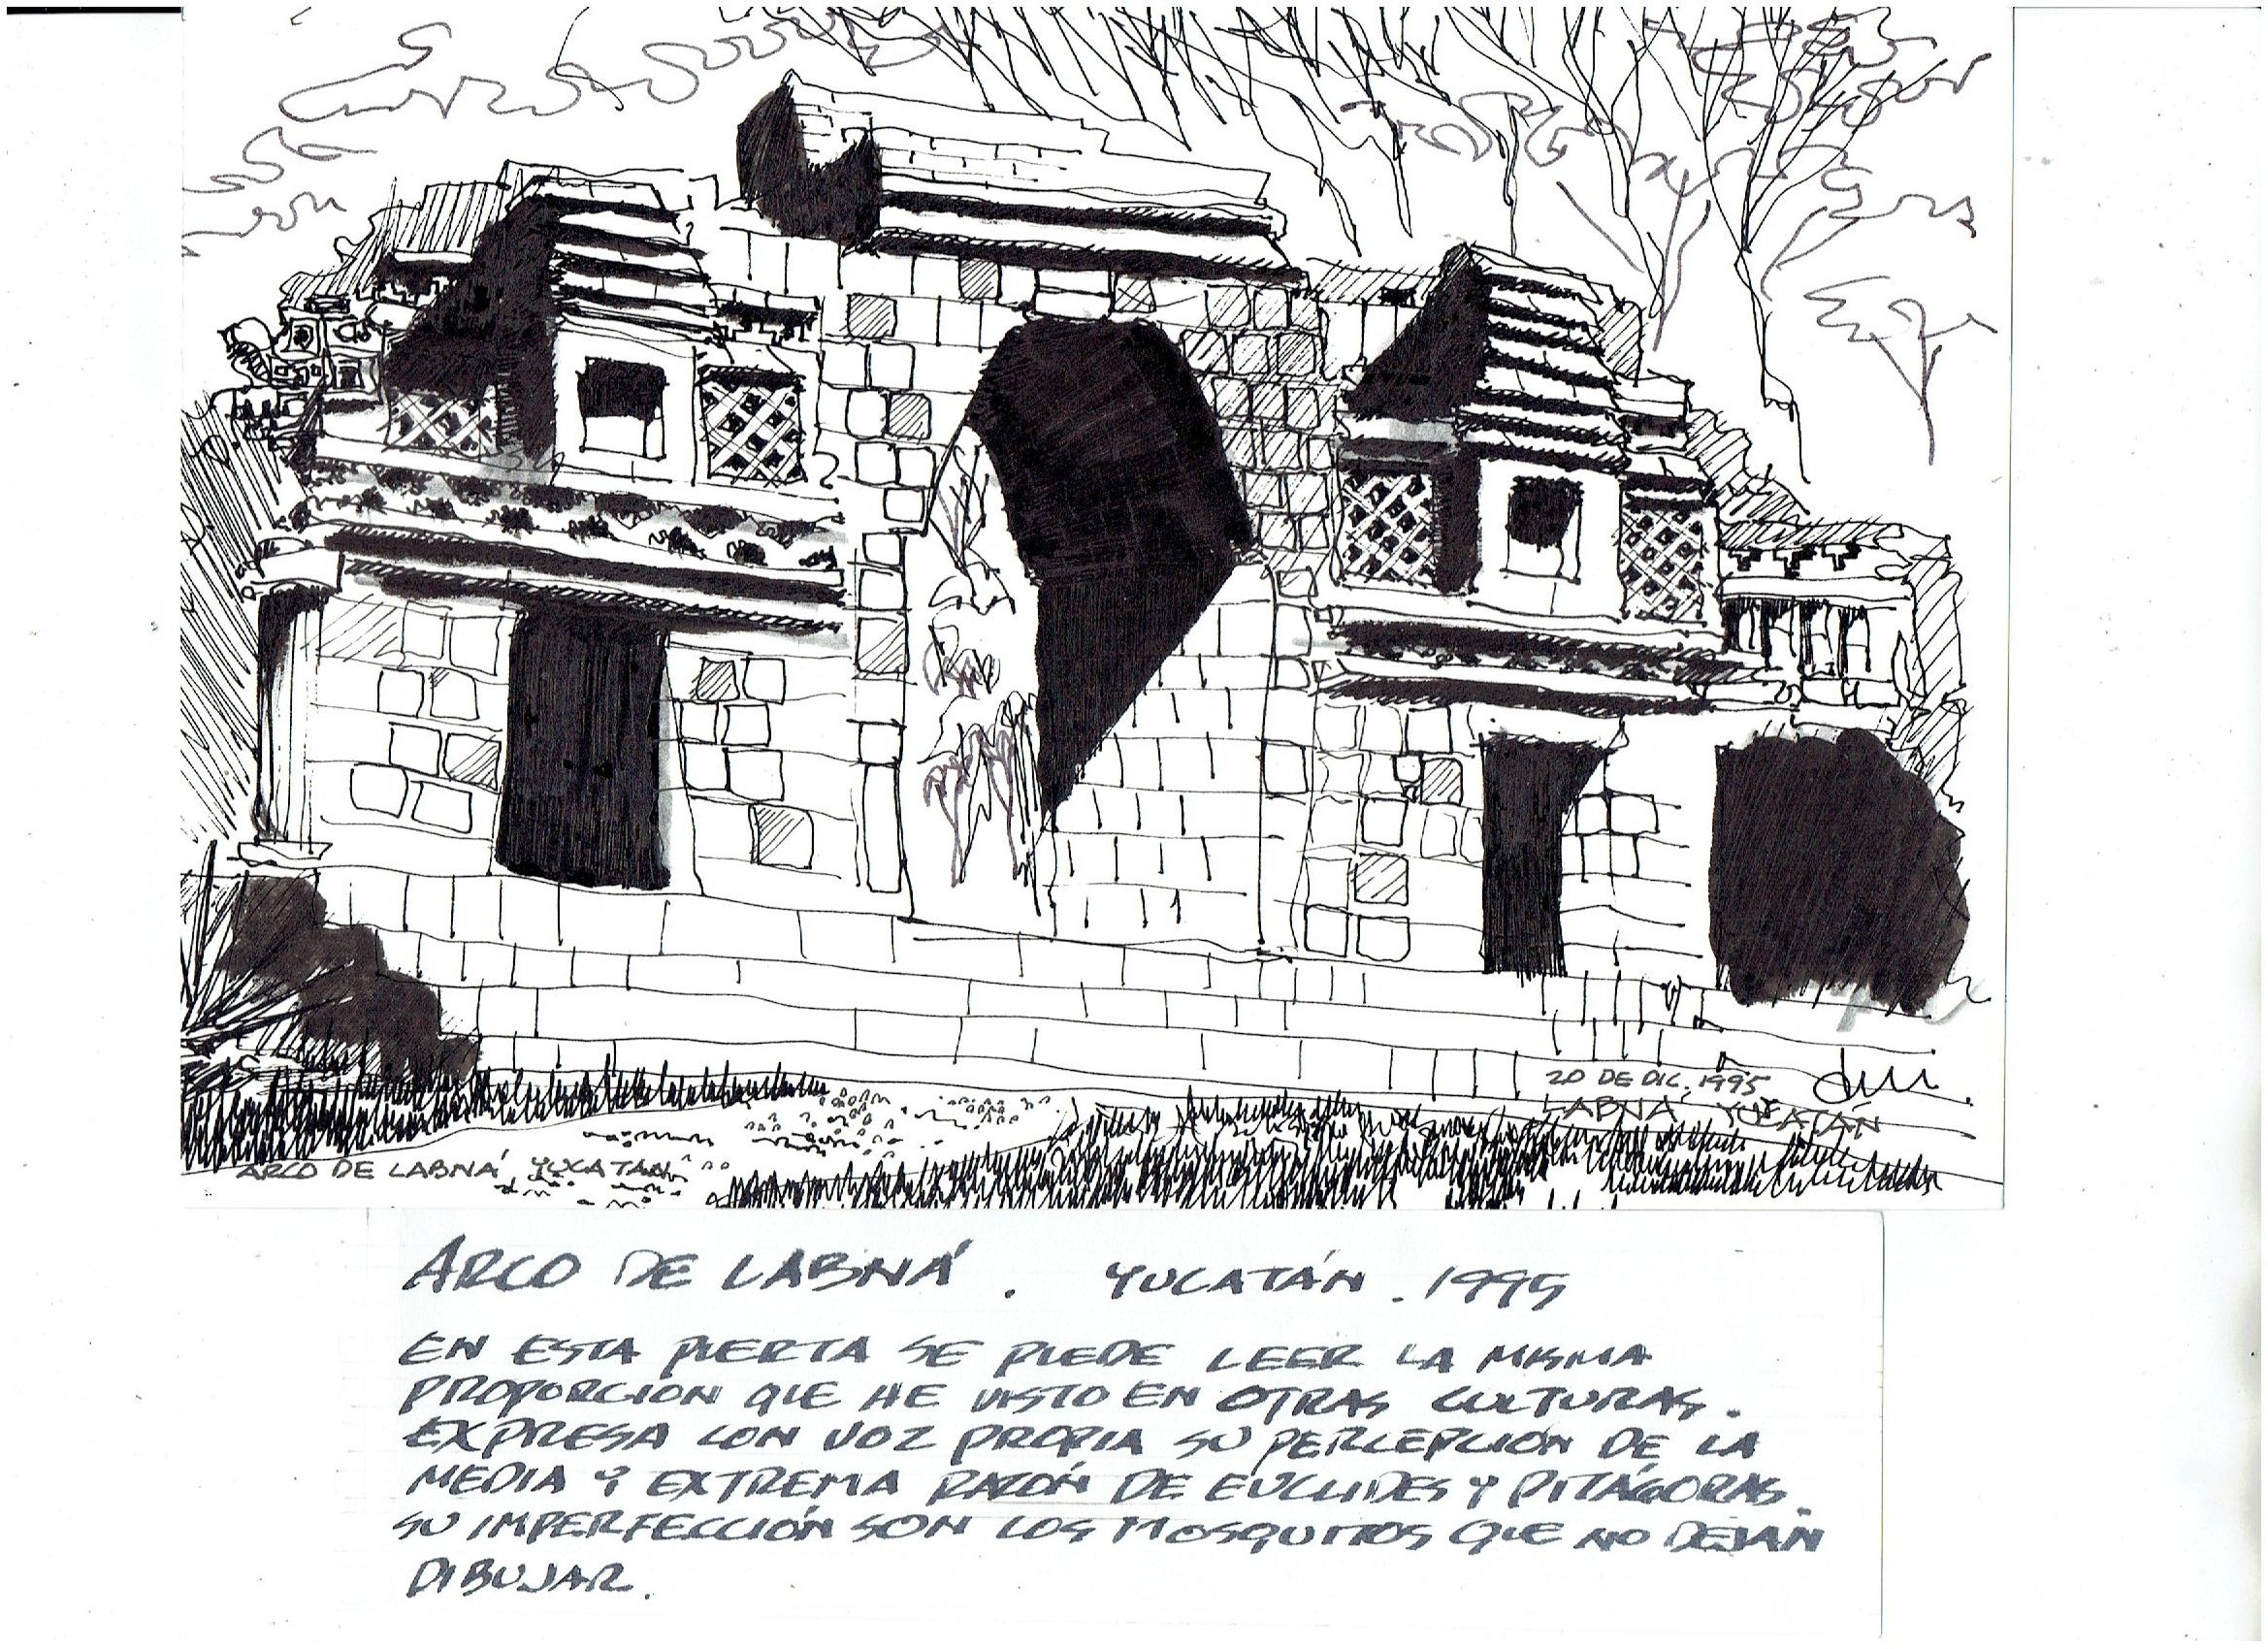 20 DE DIC. 1995
LABNÁ. YUCATÁN
ARCO DE LABNÁ YUCATAN
ARCO DE LABNÁ. YUCATÁN. 1995
EN ESTA PUERTA SE PUEDE LEER LA MISMA
PROPORCION QUE HE VISTO EN OTRAS CULTURAS.
EXPRESA CON VOZ PROPIA SU PERCEPCIÓN DE LA
MEDIA Y EXTREMA RAZÓN DE EUCLIDES Y PITÁGORAS.
SU IMPERFECCIÓN SON LOS MOSQUITOS QUE NO DEJAN
DIBUJAR.